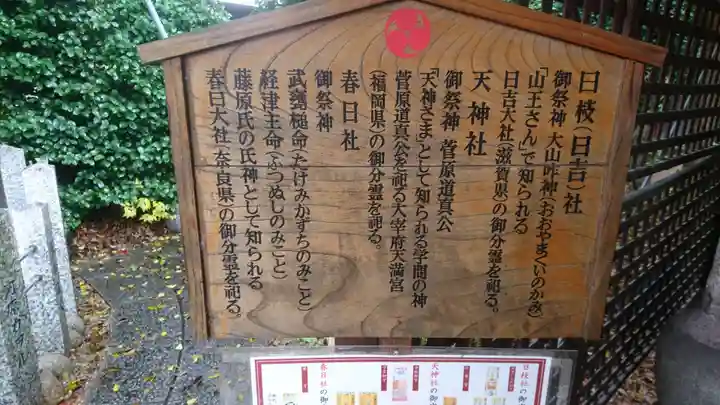 日枝(日吉)社
御祭神 大山咋神(おおやまくいのかみ)
「山王さん」で知られる
日吉大社(滋賀県)の御分霊を祀る。
天神社
御祭神 菅原道真公
「天神さま」として知られる学問の神
菅原道真公を祀る大宰府天満宮
(福岡県)の御分霊を祀る。
春日社
御祭神
武甕槌命(たけみかずちのみこと)
経津主命(ふつぬしのみこと)
藤原氏の氏神として知られる
春日大社(奈良県)の御分霊を祀る。
日枝社の御
天神社の御
春日社の御